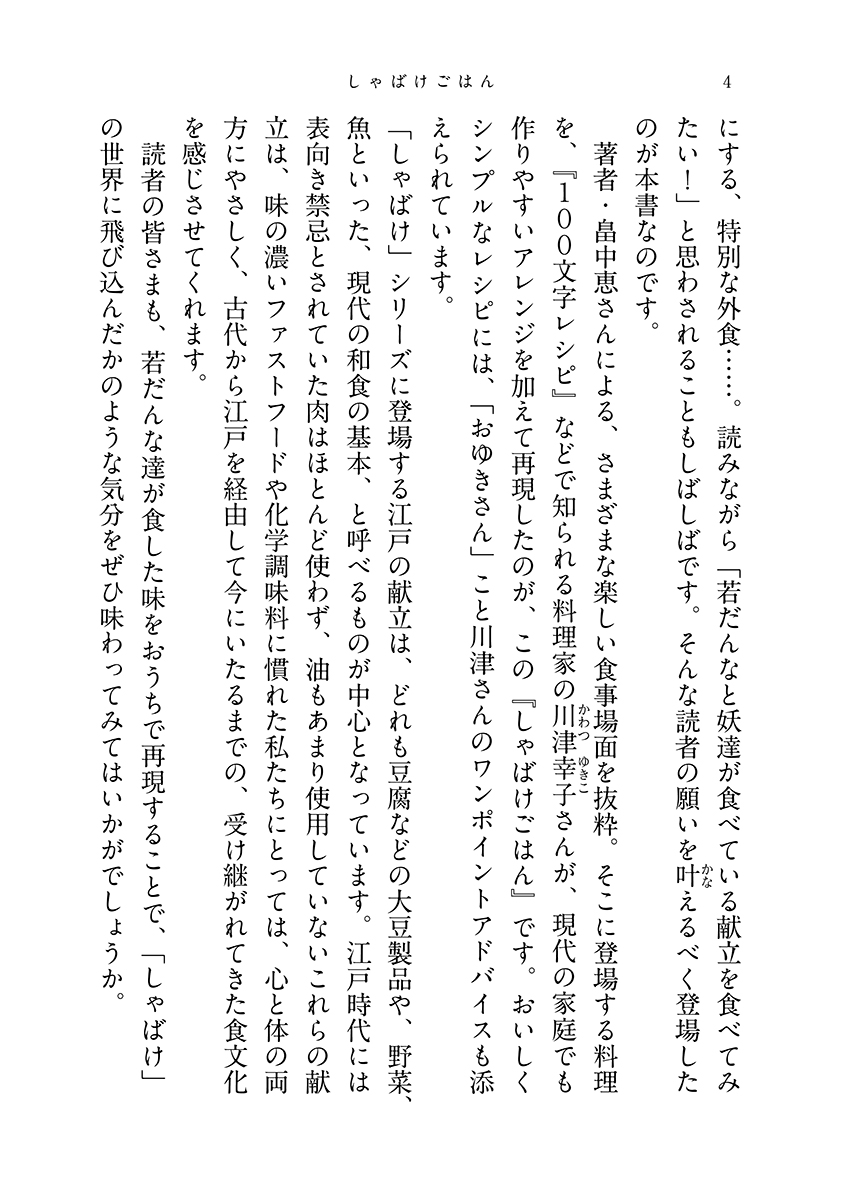 しゃばけごはん
4
にする、特別な外食……。読みながら「若だんなと妖達が食べている献立を食べてみ
たい！」と思わされることもしばしばです。そんな読者の願いを叶えるべく登場した
かな
のが本書なのです。
著者・畠中恵さんによる、さまざまな楽しい食事場面を抜粋。そこに登場する料理
を、『100文字レシピ』などで知られる料理家の川津幸子さんが、現代の家庭でも
かわつ ゆきこ
作りやすいアレンジを加えて再現したのが、この『しゃばけごはん』です。おいしく
シンプルなレシピには、「おゆきさん」こと川津さんのワンポイントアドバイスも添
えられています。
「しゃばけ」シリーズに登場する江戸の献立は、どれも豆腐などの大豆製品や、野菜、
魚といった、現代の和食の基本、と呼べるものが中心となっています。江戸時代には
表向き禁忌とされていた肉はほとんど使わず、油もあまり使用していないこれらの献
立は、味の濃いファストフードや化学調味料に慣れた私たちにとっては、心と体の両
方にやさしく、古代から江戸を経由して今にいたるまでの、受け継がれてきた食文化
を感じさせてくれます。
読者の皆さまも、若だんな達が食した味をおうちで再現することで、「しゃばけ」
の世界に飛び込んだかのような気分をぜひ味わってみてはいかがでしょうか。